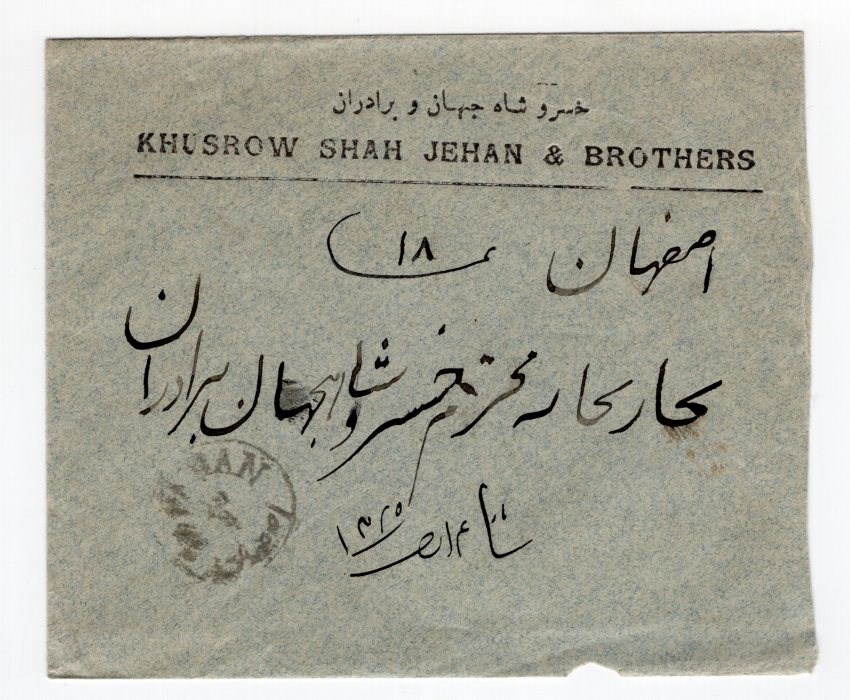 خسرو شاه جهان و برادران
KHUSROW SHAH JEHAN & BROTHERS
اصفهان
۱۸
تجارتخانه محترم خسرو شاهجهان برادران
۱۳۲۵